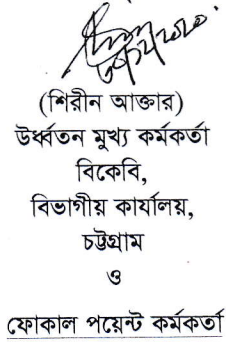 (শিরীন আক্তার)
উর্ধ্বতন মুখ্য কর্মকর্তা
বিকেবি,
বিভাগীয় কার্যালয়,
চট্টগ্রাম
ও
ফোকাল পয়েন্ট কর্মকর্তা